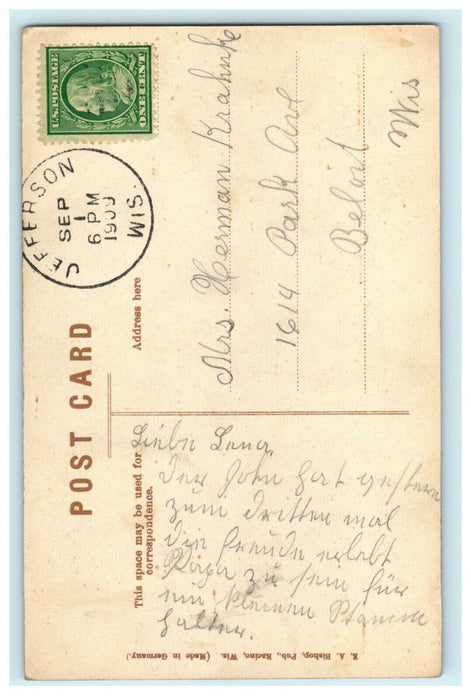 U.S.POSTAGE
ONE CENT
JEFFERSON
SEP
1
6 PM
1909
WIS.
POST CARD
Address here
Mrs. Herman Krahnke
1614 Park Ave
Beloit
Wis
This space may be used for
correspondence.
Liebe Lena,
Der John hat gestern
zum dritten mal
die freude erlebt
Papa zu sein für
ein kleinen Stamm
halter.
E. A. Bishop, Pub., Racine, Wis. (Made in Germany.)